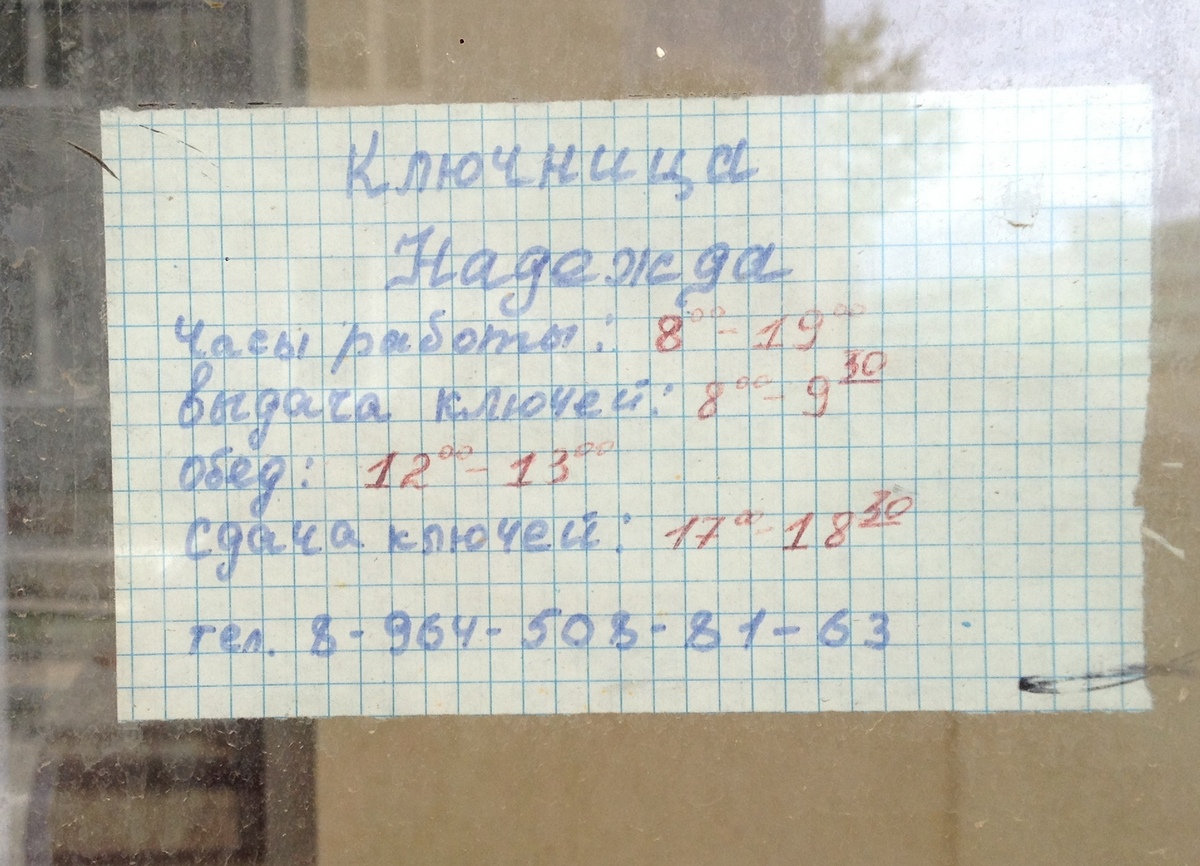 Ключница
Надежда
часы работы: 8⁰⁰ - 19⁰⁰
выдача ключей: 8⁰⁰ - 9³⁰
обед: 12⁰⁰ - 13⁰⁰
сдача ключей: 17⁰⁰ - 18³⁰
тел. 8-964-508-81-63